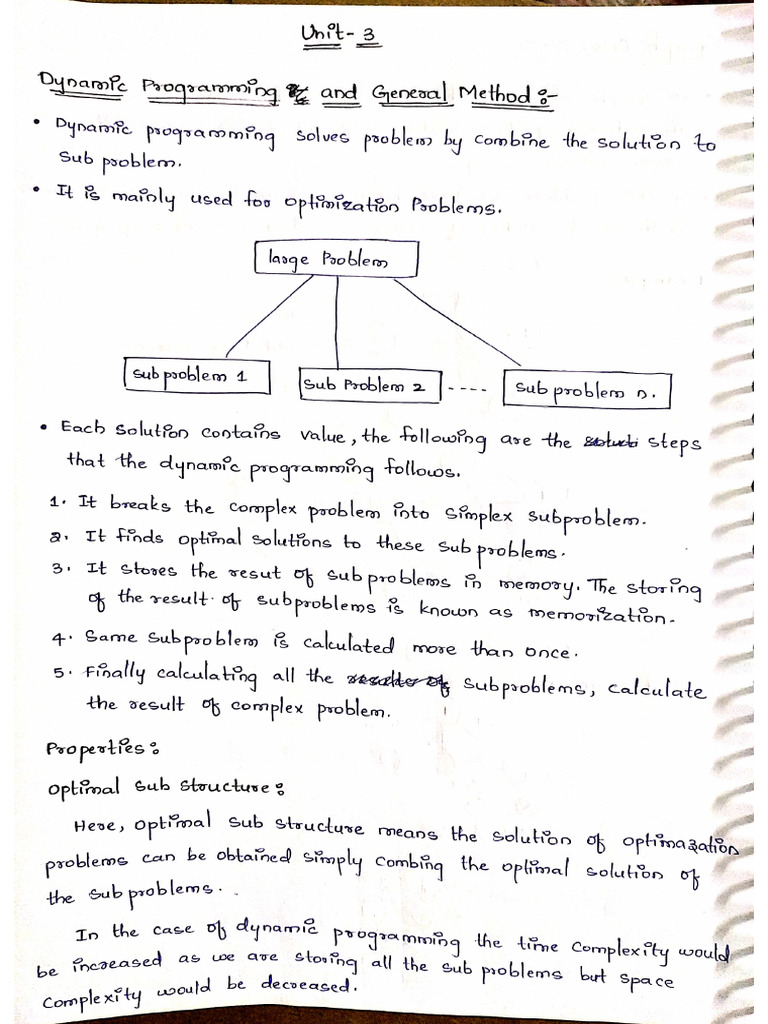 Unit-3
Dynamic Programming and General Method :-
• Dynamic programming solves problem by combine the solution to
sub problem.
• It is mainly used for optimization Problems.
large Problem
Sub problem 1
Sub Problem 2 ----
Sub problem n.
• Each solution contains value, the following are the steps
that the dynamic programming follows.
1. It breaks the complex problem into simplex subproblem.
2. It finds optimal solutions to these sub problems.
3. It stores the resut of sub problems in memory. The storing
of the result of subproblems is known as memorization.
4. Same subproblem is calculated more than once.
5. Finally calculating all the results of subproblems, calculate
the result of complex problem.
Properties:
Optimal Sub Structure:
Here, optimal sub structure means the solution of optimazation
problems can be obtained simply combing the optimal solution of
the sub problems.
In the case of dynamic programming the time complexity would
be increased as we are storing all the sub problems but space
complexity would be decreased.